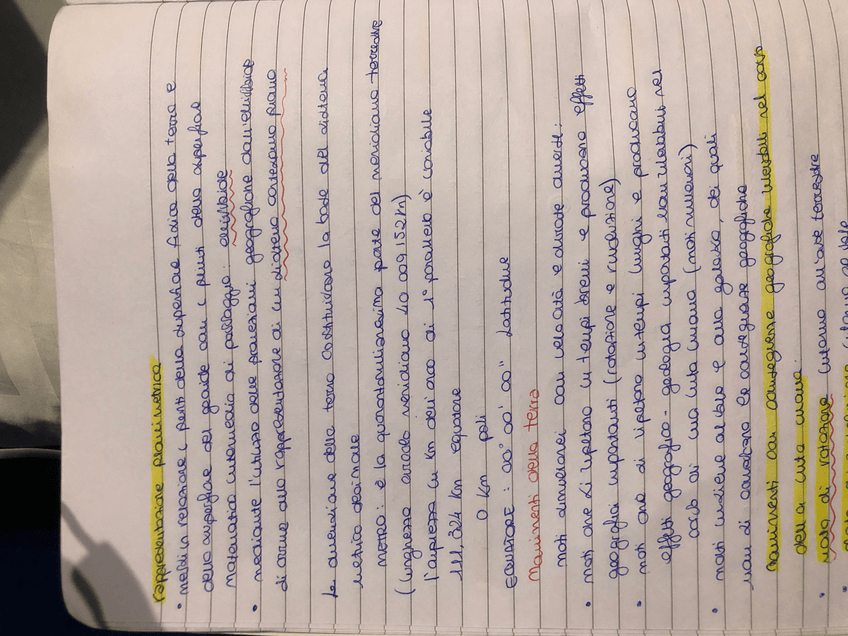 rappresentazione planimetrica
• mettere in relazione i punti della superficie fisica della terra e
della superficie del geoide con i punti della superficie
matematica intermedia di passaggio: ellissoide
• mediante l'utilizzo delle proiezioni geografiche dall'ellissoide
di arriva alla rappresentazione di un sistema cartesiano piano
Le dimensione della terra costituiscono la base del sistema
metrico decimale
METRO: è la quarantamilionesima parte del meridiano terrestre
(lunghezza circolo meridiano 40 009 152 m)
l'ampiezza in km dell'arco di 1° parallelo è variabile
111,324 km equatore
0 km poli
EQUATORE: 00° 00' 00'' Latitudine
Movimenti della terra
moti simultanei con velocità e durate diverse:
• moti che si ripetono in tempi brevi e producono effetti
geografici importanti (rotazione e rivoluzione)
• moti che si ripetono in tempi lunghi e producono
effetti geografico-geologici importanti non rilevabili nel
corso di una vita umana (moti millenari)
• moti insieme al sole e alla galassia, dei quali
non si conoscono le conseguenze geografiche
movimenti con conseguenze geografiche rilevabili nel corso
della vita umana
• moto di rotazione intorno all'asse terrestre